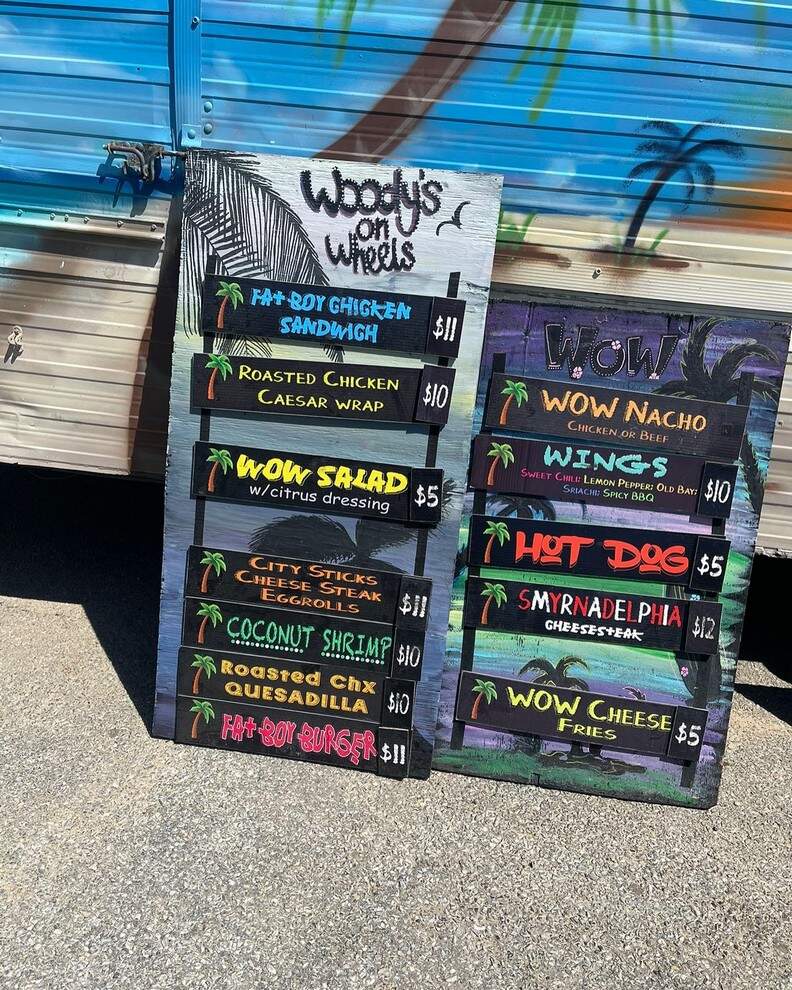 Woody's
on
Wheels
FAT BOY CHICKEN
SANDWICH $11
ROASTED CHICKEN
CAESAR WRAP $10
WOW SALAD
w/citrus dressing $5
CITY STICKS
CHEESE STEAK
EGGROLLS $11
COCONUT SHRIMP $10
Roasted Chx
QUESADILLA $10
FAT BOY BURGER $11
WOW
WOW NACHO
CHICKEN OR BEEF
WINGS
SWEET CHILI; LEMON PEPPER; OLD BAY;
SRIACHI; SPICY BBQ $10
HOT DOG $5
SMYRNADELPHIA
CHEESESTEAK $12
WOW CHEESE
FRIES $5